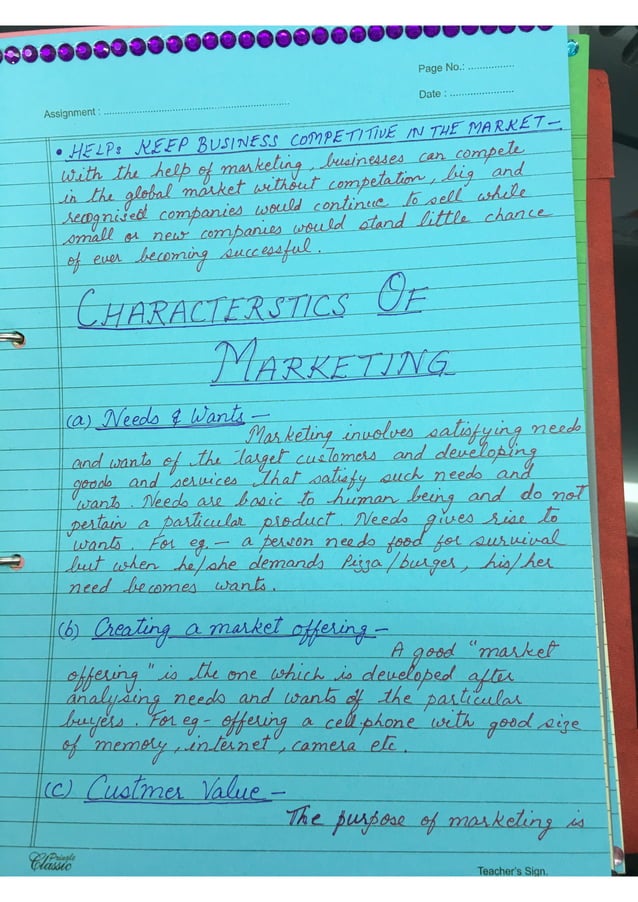 Page No.: ...............
Date : .....................
Assignment : ..............................................................
• HELPS KEEP BUSINESS COMPETITIVE IN THE MARKET –
With the help of marketing, businesses can compete
in the global market without competation, big and
recognised companies would continue to sell while
small or new companies would stand little chance
of ever becoming successful.
CHARACTERSTICS OF
MARKETING
(a) Needs & Wants –
Marketing involves satisfying needs
and wants of the target customers and developing
goods and services that satisfy such needs and
wants. Needs are basic to human being and do not
pertain a particular product. Needs gives rise to
wants. For eg. – a person needs food for survival
but when he/she demands Pizza/burger, his/her
need becomes wants.
(b) Creating a market offering –
A good "market
offering" is the one which is developed after
analysing needs and wants of the particular
buyers. For eg – offering a cell phone with good size
of memory, internet, camera etc.
(c) Custmer Value –
The purpose of marketing is
Pringle
Classic
Teacher's Sign.